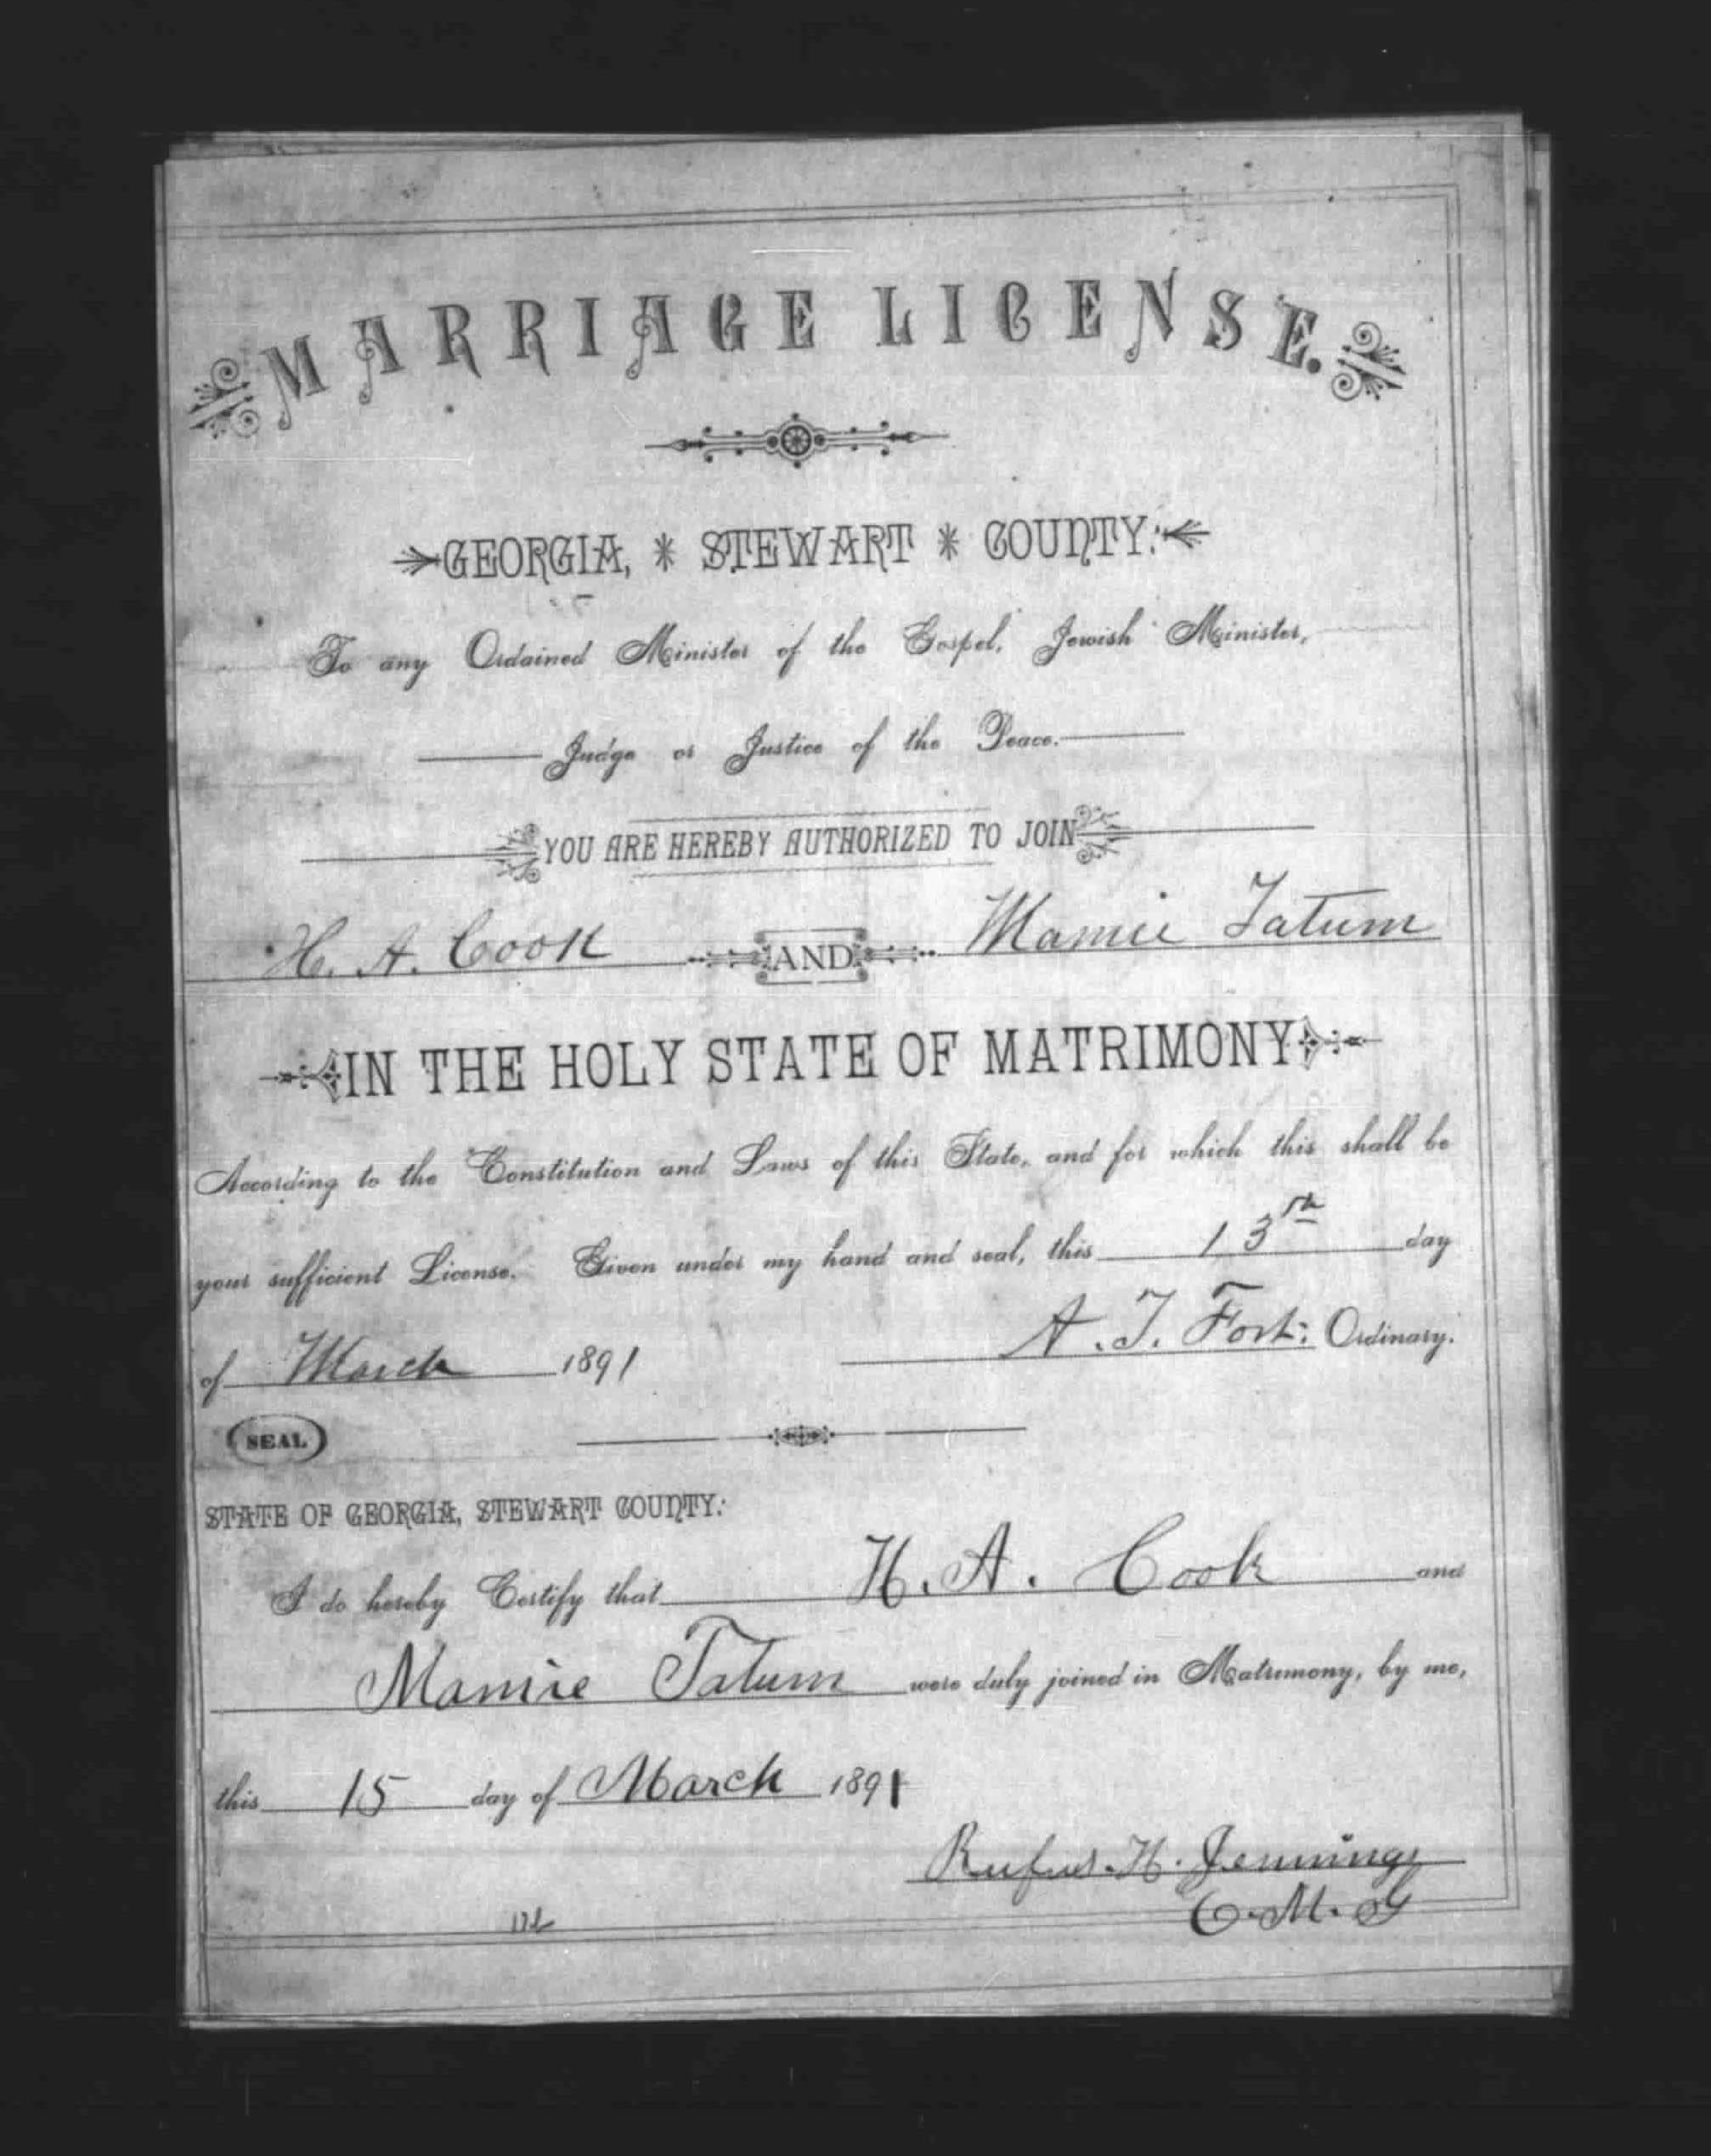 MARRIAGE LICENSE.
GEORGIA, * STEWART * COUNTY:
To any Ordained Minister of the Gospel, Jewish Minister,
Judge or Justice of the Peace.
YOU ARE HEREBY AUTHORIZED TO JOIN
H. A. Cook AND Mamie Tatum
IN THE HOLY STATE OF MATRIMONY
According to the Constitution and Laws of this State, and for which this shall be
your sufficient License. Given under my hand and seal, this 13th day
of March 1891 A. T. Fort: Ordinary.
SEAL
STATE OF GEORGIA, STEWART COUNTY:
I do hereby Certify that H. A. Cook and
Mamie Tatum were duly joined in Matrimony, by me,
this 15 day of March 1891
Rufus. H. Jennings
O. M. G